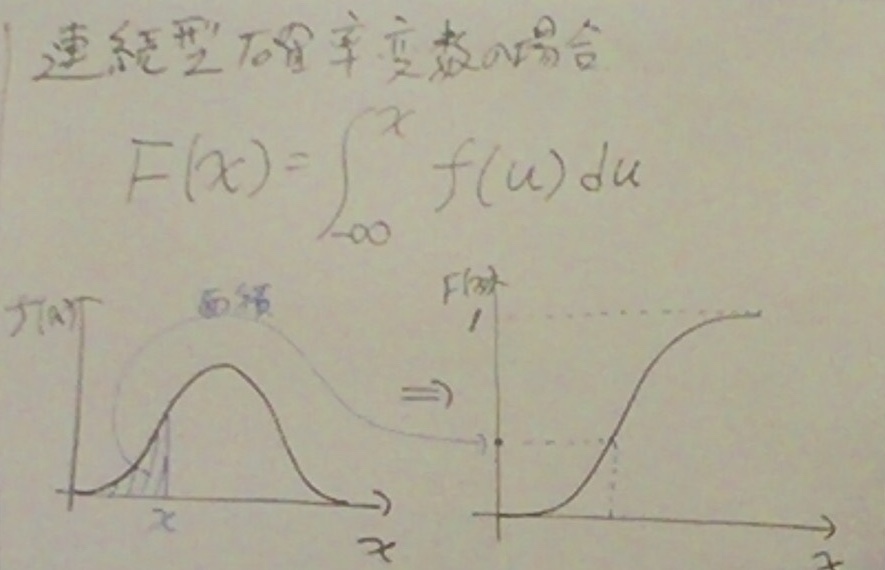 連続型確率変数の場合
F(x) = ∫_{-∞}^{x} f(u) du
f(x)
面積
x
x
⇒
F(x)
1
x